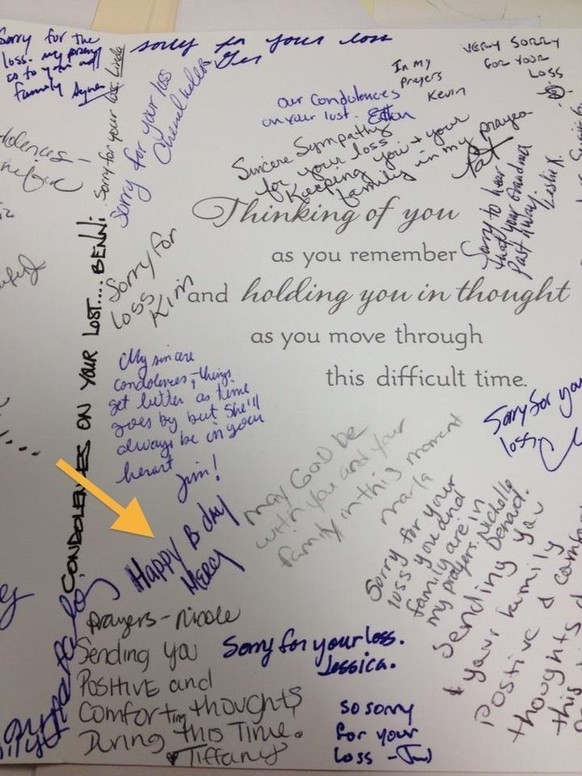 Sorry for the
loss. my prayers
go to you and
family
sorry for your loss
In my
prayers
Kevin
VERY SORRY
FOR YOUR
LOSS
our condolences
on your lost.
Sorry for your loss
Sorry for your lost. Linda
Sincere Sympathy
for your loss
Keeping you & your
family in my prayers
Pat
Sorry to hear
that your Grandma
Past Away
Leslie K.
Thinking of you
as you remember
and holding you in thought
as you move through
this difficult time.
Sorry for
loss
Kim
CONDOLENCES ON YOUR LOST.... BENNI
My sincere
condolences, things
get better as time
goes by but she'll
always be in your
heart
Jim!
Sorry for your
loss.
May God be
with you and your
family in this moment
Marla
Happy B day
Mercy
Sorry for your
loss you and
family are in
my prayers. Nichelle
Sending you
& your family
positive &
thoughts
this
Prayers - Nicole
Sending you
Positive and
Comforting thoughts
During this Time.
♥Tiffany
Sorry for your loss.
Jessica.
so sorry
for your
loss